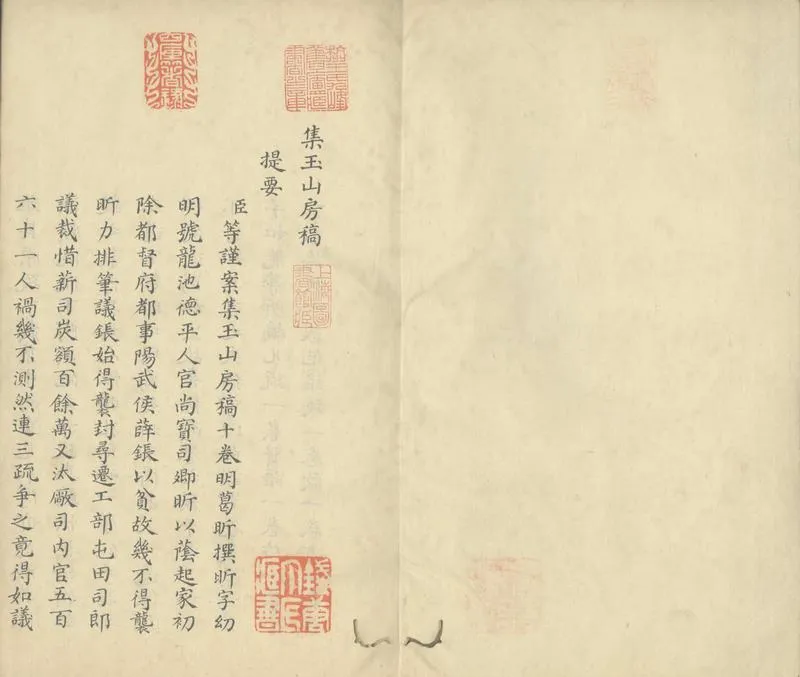 集玉山房稿
提要
臣等謹案集玉山房稿十卷明葛昕撰昕字幼
明號龍池德平人官尚寶司卿昕以蔭起家初
除都督府都事陽武侯薛鋹以貧故幾不得襲
昕力排筆議鋹始得襲封尋遷工部屯田司郎
議裁惜薪司炭額百餘萬又汰厰司內官五百
六十一人禍幾不測然連三疏爭之竟得如議